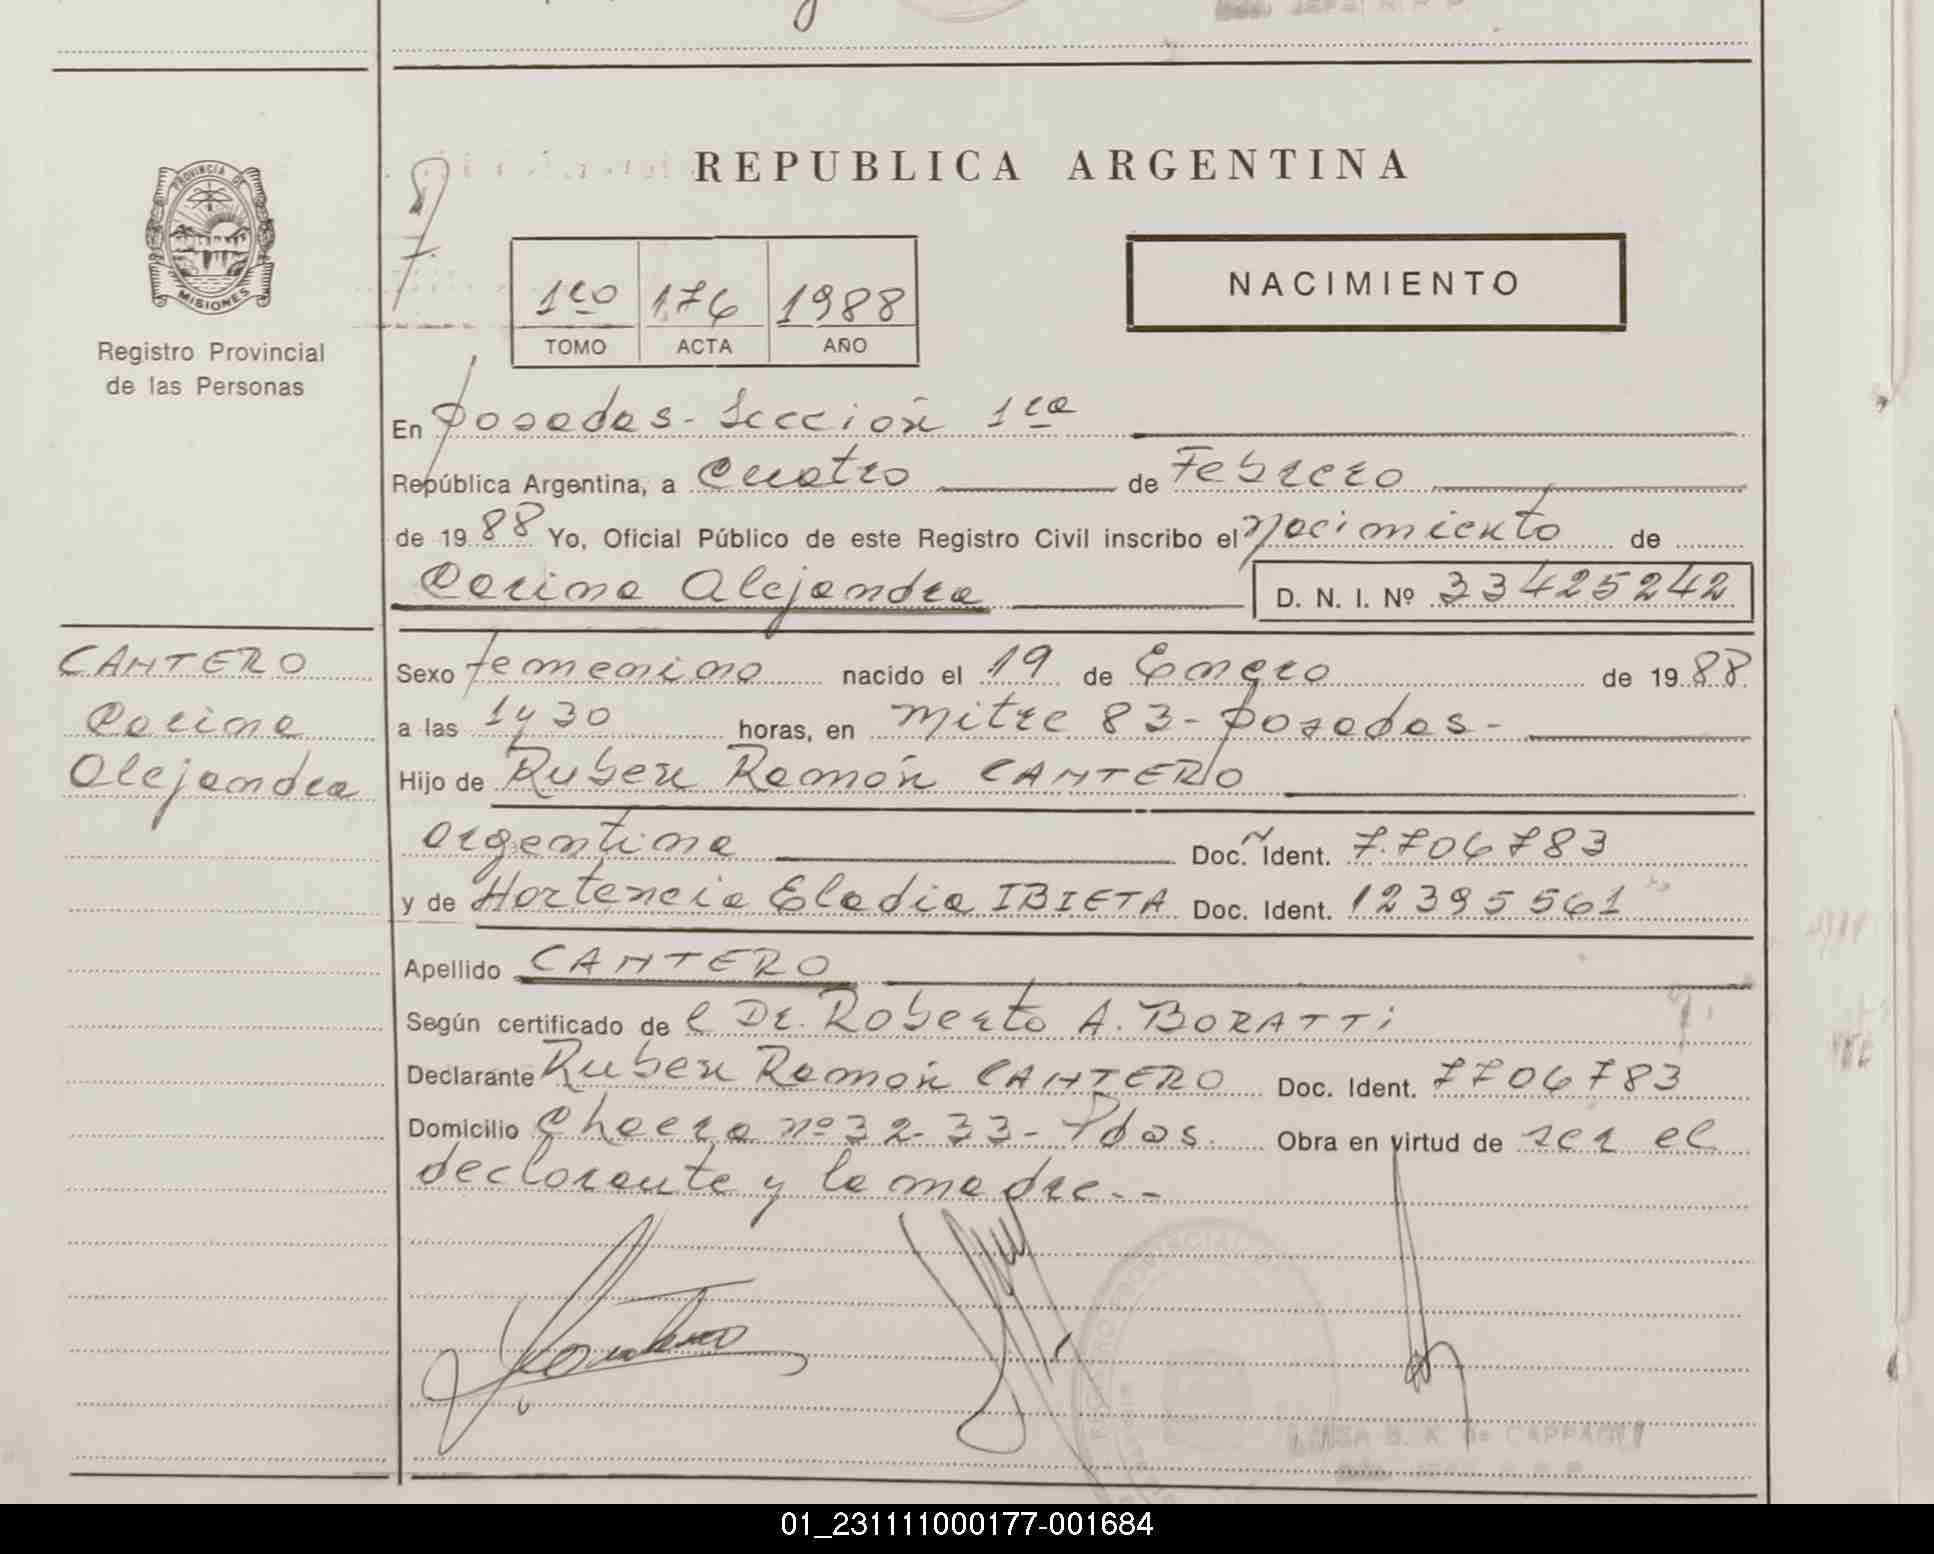 REPUBLICA ARGENTINA
PROVINCIA DE
MISIONES
Registro Provincial
de las Personas
1ro 176 1988
TOMO ACTA AÑO
NACIMIENTO
En Posadas - Sección 1ra
República Argentina, a cuatro de Febrero
de 19 88 Yo, Oficial Público de este Registro Civil inscribo el Nacimiento de
Carina Alejandra D. N. I. Nº 33425242
CANTERO
Carina
Alejandra
Sexo femenino nacido el 19 de Enero de 19 88
a las 1y 30 horas, en Mitre 83 - Posadas -
Hijo de Ruben Ramón CANTERO
argentina Doc. Ident. 7.706783
y de Hortencia Eladia IBIETA Doc. Ident. 12395561
Apellido CANTERO
Según certificado de l Dr. Roberto A. BORATTi
Declarante Ruben Ramón CANTERO Doc. Ident. 7706783
Domicilio Chacra nº 32-33- Pdas. Obra en virtud de ser el
declarante y la madre.--
01_231111000177-001684